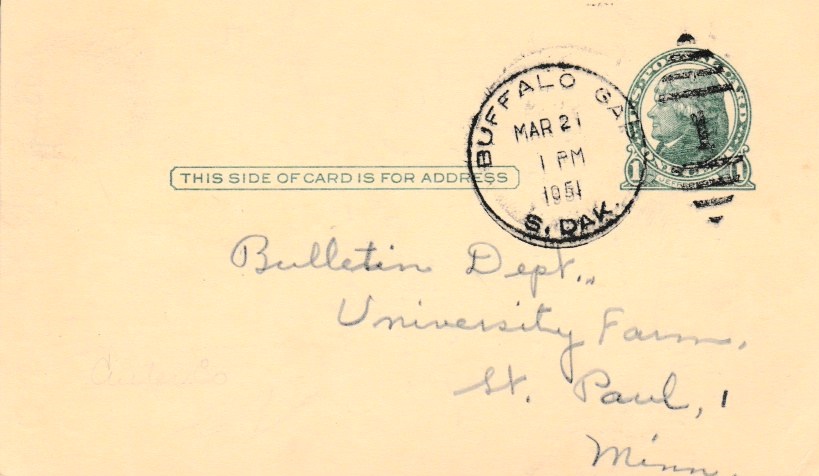 BUFFALO GAP
MAR 21
1 PM
1951
S. DAK.
1
THIS SIDE OF CARD IS FOR ADDRESS
Bulletin Dept.,
University Farm,
St. Paul, 1
Minn.